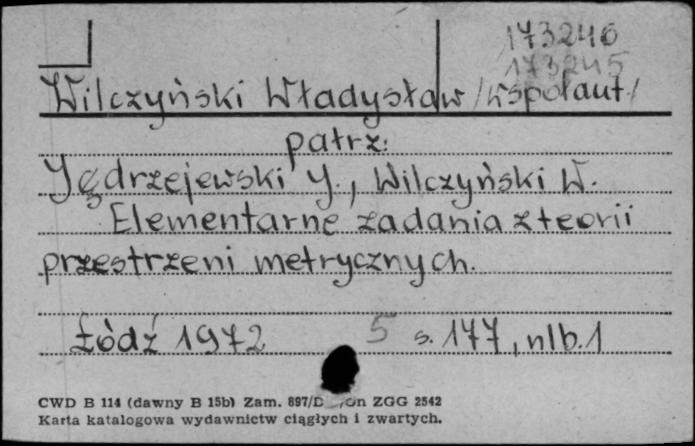 173246
173245
Wilczyński Władysław /współaut./
patrz:
Jędrzejewski J., Wilczyński W.
Elementarne zadania z teorii
przestrzeni metrycznych.
Łódź 1972 5 s. 177, nlb. 1
CWD B 114 (dawny B 15b) Zam. 897/D ZGG 2542
Karta katalogowa wydawnictw ciągłych i zwartych.